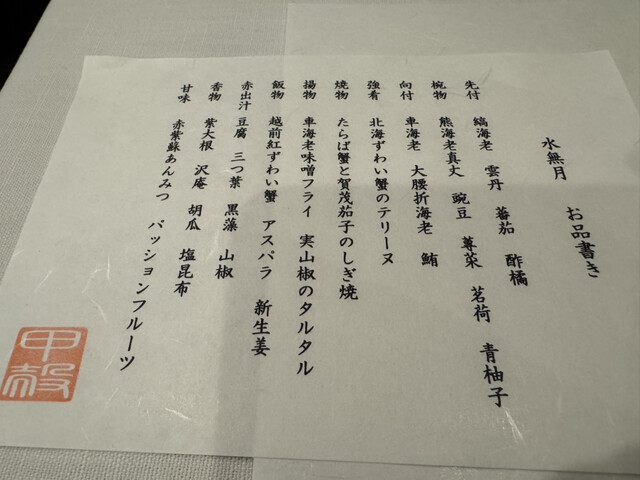 水無月 お品書き
先付 縞海老 雲丹 蕃茄 酢橘
椀物 熊海老真丈 豌豆 蓴菜 茗荷 青柚子
向付 車海老 大腰折海老 鮪
強肴 北海ずわい蟹のテリーヌ
焼物 たらば蟹と賀茂茄子のしぎ焼
揚物 車海老味噌フライ 実山椒のタルタル
飯物 越前紅ずわい蟹 アスパラ 新生姜
赤出汁 豆腐 三つ葉 黒藻 山椒
香物 紫大根 沢庵 胡瓜 塩昆布
甘味 赤紫蘇あんみつ パッションフルーツ
甲殻